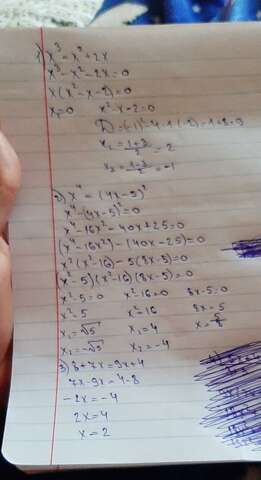 1) x³ = x² + 2x
x³ - x² - 2x = 0
x(x² - x - 2) = 0
x₁ = 0 x² - x - 2 = 0
x₂ = (1+3)/2 = 2
x₃ = (1-3)/2 = -1
2) x⁴ = (4x-5)²
x⁴ - (4x-5)² = 0
x⁴ - 16x² - 40x + 25 = 0
(x⁴ - 16x²) - (40x - 25) = 0
x²(x² - 16) - 5(8x - 5) = 0
(x² - 5)(x² - 16)(8x - 5) = 0
x² - 5 = 0 x² - 16 = 0 8x - 5 = 0
x² = 5 x² = 16 8x = 5
x₁ = √5 x₁ = 4 x = 5/8
x₂ = -√5 x₂ = -4
3) 8 + 7x = 9x + 4
7x - 9x = 4 - 8
-2x = -4
2x = 4
x = 2